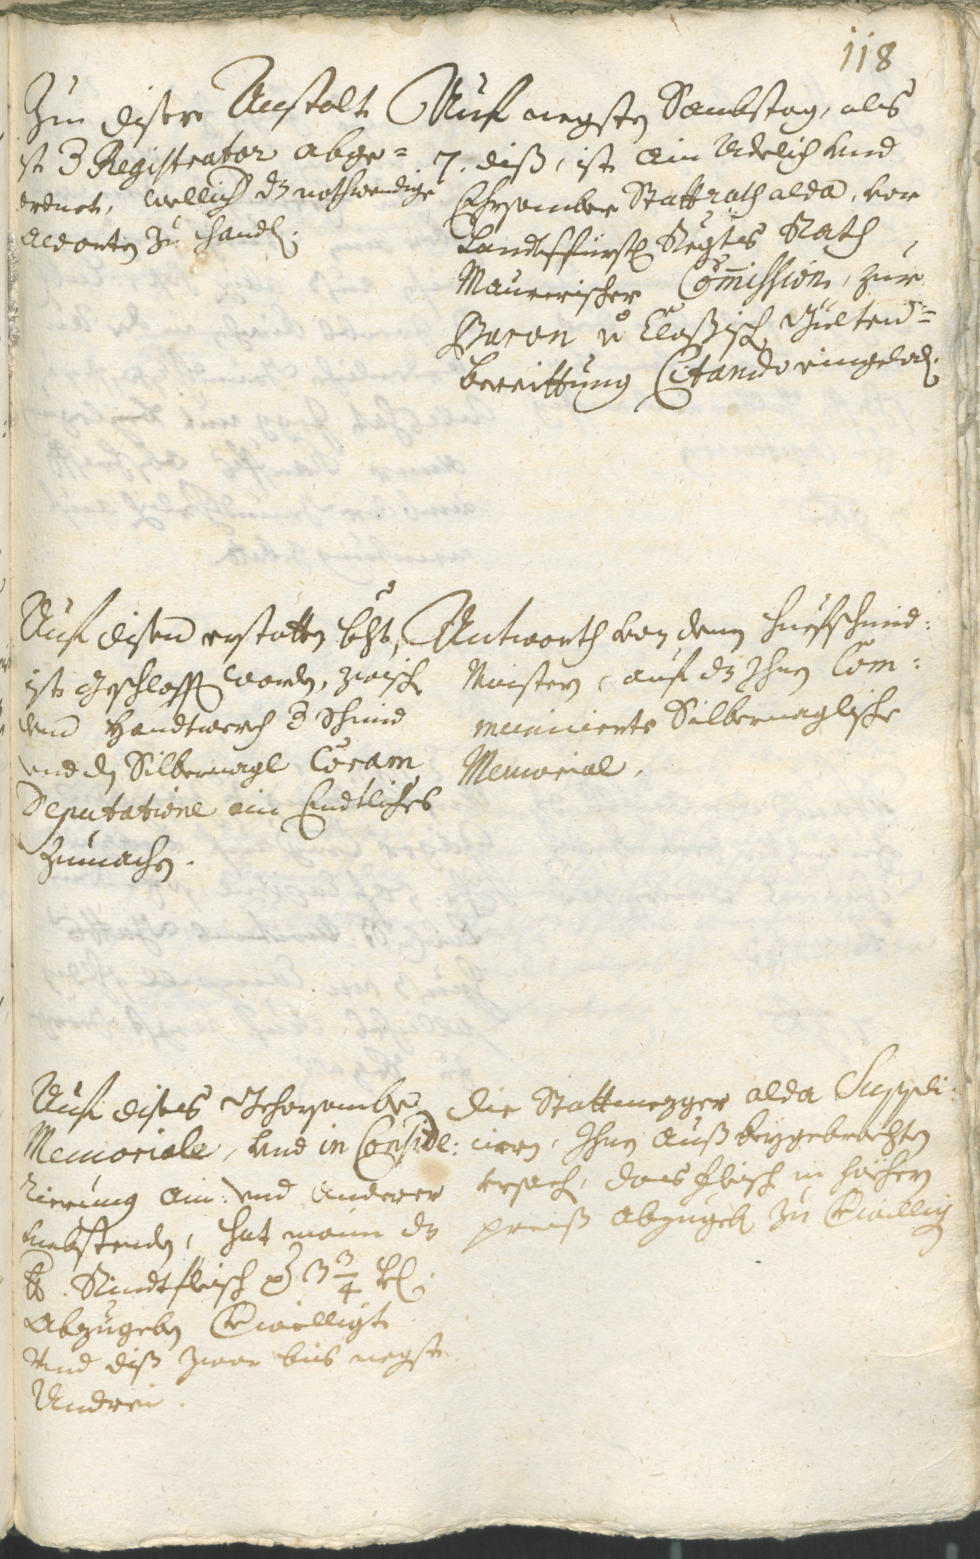 118
Zu diser Anstalt
ist H Registrator abge=
ordnet, wellich dz nothwendige
aldorten zu handlen.
Auf negsten Sambstag, als
7. diß, ist ein Adelich und
Ehrsamber Stattrath alda, von
Landtsfürstl Regts Rath
Maurerischer Commission, zur
Baron
bereittung Citando eingelad.
Auf disen erstatten bht,
ist geschlossen worden, zwische
dem Handtwerch d Schmid
und den Silbernagl Coram
Deputatione ein Endtliches
zumachen.
Antworth von denen Huefschmid:
Maistern, auf dz Ihnen Com:
municierte Silbernaglische
Memorial.
Auf dises Gehorsambe
Memoriale, und in Conside:
rierung ain: und anderer
umbstenden, hat mann dz
℔. Rindtfleisch p 3 3/4 kr
abzugeben Bewilligt
Und diß zwar bis negst
Andrei.
Die Stattmezger alda Suppli:
ciren, Ihnen auß beygebrachten
ursach, das fleisch in höchern
preiß abzugeben zu Bewillig